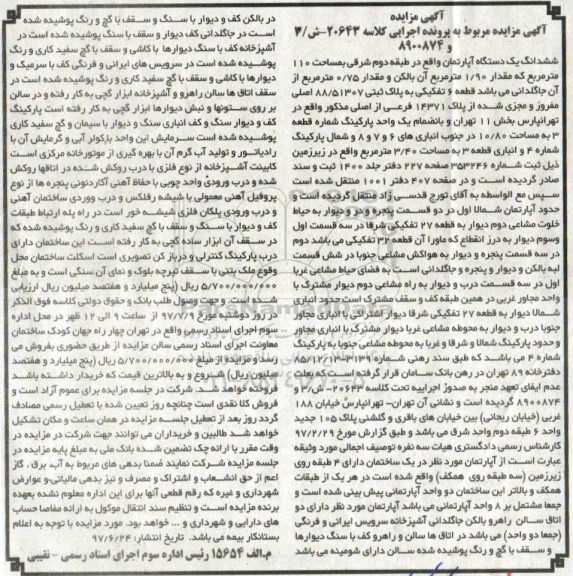 آگهی مزایده
آگهی مزایده مربوط به پرونده اجرایی کلاسه ۲۰۶۴۳-ش/۳
و ۸۹۰۰۸۷۴
ششدانگ یک دستگاه آپارتمان واقع در طبقه دوم شرقی بمساحت ۱۱۰
مترمربع که مقدار ۱/۹۰ مترمربع آن بالکن و مقدار ۰/۷۵ مترمربع از
آن جاگلدانی می باشد قطعه ۶ تفکیکی به پلاک ثبتی ۸۸/۵۱۳۰۷ اصلی
مفروز و مجزی شده از پلاک ۱۴۳۷۱ فرعی از اصلی مذکور واقع در
تهرانپارس بخش ۱۱ تهران و بانضمام یک واحد پارکینگ شماره قطعه
۳ به مساحت ۱۰/۸۰ در جنوب انباری های ۶ و ۷ و ۸ و شمال پارکینگ
شماره ۴ و انباری قطعه ۳ به مساحت ۳/۴۰ مترمربع واقع در زیرزمین
ذیل ثبت شماره ۳۵۳۲۴۶ صفحه ۲۲۷ دفتر جلد ۱۴۰۰ ثبت و سند
صادر گردیده است و در صفحه ۴۰۷ دفتر ۱۰۰۱ منتقل شده است
سپس مع الواسطه به آقای تورج قدسی راد منتقل گردیده است و
حدود آپارتمان شمالا اول در دو قسمت پنجره و در و دیوار به حیاط
خلوت مشاعی دوم دیوار به قطعه ۲۷ تفکیکی شرقا در سه قسمت اول
وسوم دیوار به درز انقطاع که ماورا آن قطعه ۳۲ تفکیکی می باشد دوم
در سه قسمت پنجره و دیوار به هواکش مشاعی جنوبا در شش قسمت
لبه بالکن و دیوار و پنجره و جاگلدانی است به فضای حیاط مشاعی غربا
اول در سه قسمت درب و دیوار به راه مشاعی دوم دیوار مشترک با
واحد مجاور غربی در همین طبقه کف و سقف مشترک است حدود انباری
شمالا دیوار به قطعه ۲۷ تفکیکی شرقا دیوار اشتراکی با انباری مجاور
جنوبا درب و دیوار به محوطه مشاعی غربا دیوار مشترک با انباری مجاور
و حدود پارکینگ شمالا و شرقا و غربا به محوطه مشاعی جنوبا به پارکینگ
شماره ۴ می باشد که طبق سند رهنی شماره ۳۱۳۹-۸۵/۱۲/۱۳
دفترخانه ۸۹ تهران در رهن بانک سامان قرار گرفته است که بعلت
عدم ایفای تعهد منجر به صدور اجراییه تحت کلاسه ۲۰۶۴۳-ش/۳ و
۸۹۰۰۸۷۴ گردیده است و نشانی آن تهران- تهرانپارس خیابان ۱۸۸
غربی (خیابان ریحانی) بین خیابان های باقری و گلشنی پلاک ۱۰۵ جدید
واحد ۶ طبقه دوم واحد شرقی می باشد و طبق گزارش مورخ ۹۷/۲/۲۹
کارشناس رسمی دادگستری هیات سه نفره توصیف اجمالی مورد وثیقه
عبارت است از آپارتمان مورد نظر در یک ساختمان دارای ۴ طبقه روی
زیرزمین (سه طبقه روی همکف) واقع شده است در هر یک از طبقات
همکف و بالاتر این ساختمان دو واحد آپارتمانی پیش بینی شده است و
جمعا مشتمل بر ۸ واحد آپارتمانی می باشد آپارتمان مورد نظر دارای دو
اتاق سالن راهرو بالکن جاگلدانی آشپزخانه سرویس ایرانی و فرنگی
(جمعا دو واحد) می باشد در اتاق ها سالن و راهرو کف با سنگ دیوارها
و سقف با گچ و رنگ پوشیده شده سالن دارای شومینه می باشد
در بالکن کف و دیوار با سنگ و سقف با گچ و رنگ پوشیده شده
است در جاگلدانی کف دیوار و سقف با سنگ پوشیده شده است در
آشپزخانه کف با سنگ دیوارها با کاشی و سقف با گچ سفید کاری و رنگ
پوشیده شده است در سرویس های ایرانی و فرنگی کف با سرمیک و
دیوارها با کاشی و سقف با گچ سفید کاری و رنگ پوشیده شده است در
سقف اتاق ها سالن راهرو و آشپزخانه ابزار گچی به کار رفته و در سالن
بر روی ستونها و نبش دیوارها ابزار گچی به کار رفته است پارکینگ
کف و دیوار سنگ و کف انباری سنگ و دیوار با سیمان و گچ سفید کاری
پوشیده شده است سرمایش این واحد باکولر آبی و گرمایش آن با
رادیاتور و تولید آب گرم آن با بهره گیری از موتورخانه مرکزی است
کابینت آشپزخانه از نوع فلزی با درب روکش شده در اتاقها روکش
شده و درب ورودی واحد چوبی با حفاظ آهنی آکاردئونی پنجره ها از نوع
پروفیل آهنی معمولی با شیشه رفلکس و درب ووردی ساختمان آهنی
و درب ورودی پلکان فلزی شیشه خور است در راه پله ارتباط طبقات
کف و دیوار با سنگ و سقف با گچ سفید کاری و رنگ پوشیده شده که
در سقف آن ابزار ساده گچی به کار رفته است این ساختمان دارای
درب پارکینگ کنترلی و دربازکن تصویری است اسکلت ساختمان محل
وقوع ملک بتنی با سقف تیرچه بلوک و نمای آن سنگی است و به مبلغ
۵/۷۰۰/۰۰۰/۰۰۰ ریال (پنج میلیارد و هفتصد میلیون ریال ارزیابی
شده است وجهت وصول طلب بانک و حقوق دولتی کلاسه فوق الذکر
در روز دوشنبه مورخ ۹۷/۷/۹ از ساعت ۹ الی ۱۲ ظهر در محل اداره
سوم اجرای اسناد رسمی واقع در تهران چهار راه جهان کودک ساختمان
معاونت اجرای اسناد رسمی سالن مزایده از طریق حضوری بفروش می
رسد و مزایده از مبلغ ۵/۷۰۰/۰۰۰/۰۰۰ ریال (پنج میلیارد و هفتصد
میلیون ریال) شروع و به بالاترین قیمت که خریدار داشته باشد
فروخته خواهد شد. شرکت در جلسه مزایده برای عموم آزاد است و
فروش کلا نقدی است چنانچه روز تعیین شده با تعطیل رسمی مصادف
گردد روز بعد از تعطیل جلسه مزایده در همان ساعت و مکان تشکیل
خواهد شد طالبین و خریداران می توانند جهت شرکت در مزایده در
وقت مقرر با ارائه چک تضمین شده بانک ملی به مبلغ پایه مزایده در
جلسه مزایده شرکت نمایند ضمنا بدهی های مربوط به آب، برق، گاز
اعم از حق انشعاب و اشتراک و مصرف و نیز بدهی مالیاتی،و عوارض
شهرداری و غیره که رقم قطعی آنها برای این اداره معلوم نشده بعهده
برنده مزایده است و تنظیم سند انتقال موکول به ارائه مفاصا حساب
های دارایی و شهرداری و ... خواهد بود. مورد مزایده با توجه به اعلام
بستانکار بیمه می باشد. تاریخ انتشار: ۹۷/۶/۲۴
م.الف ۱۵۶۵۴ رئیس اداره سوم اجرای اسناد رسمی - نقیبی